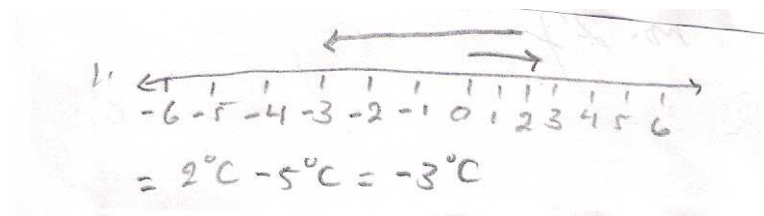 1.
-6 -5 -4 -3 -2 -1 0 1 2 3 4 5 6
= 2°C - 5°C = -3°C